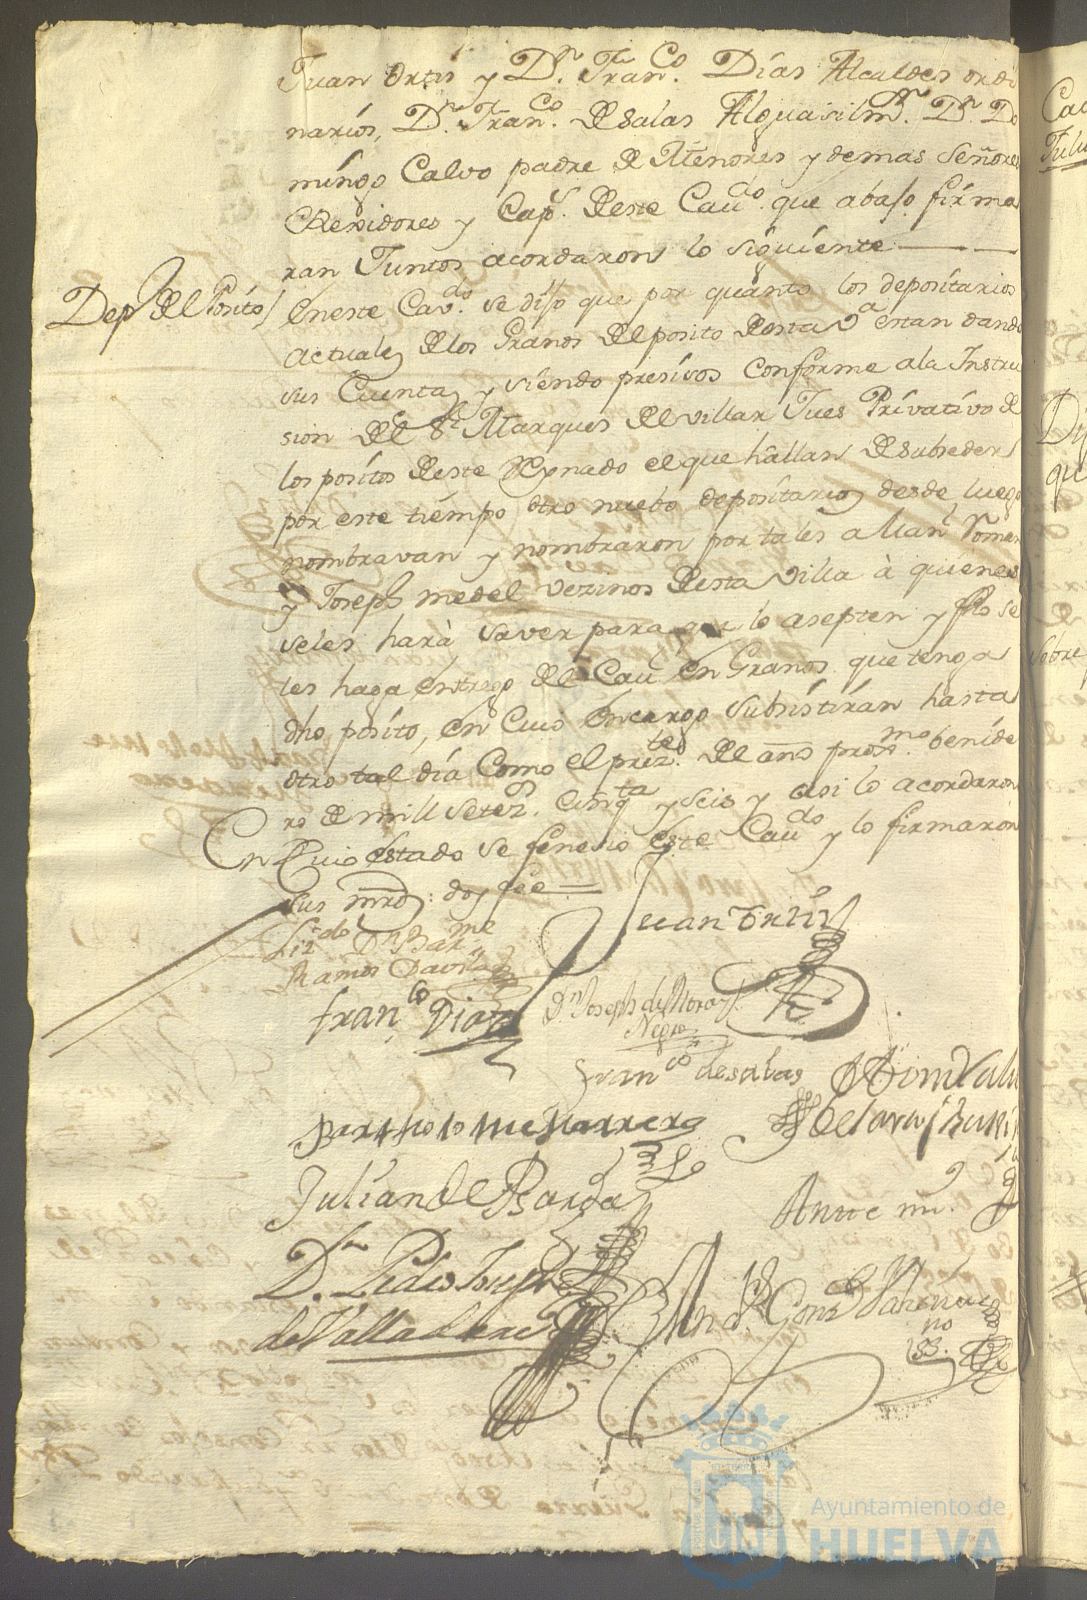 Juan Ortis y Dn. Franco. Días Alcaldes ordi
narios, Dn. Franco. de Salas Alguasil mr. Dn. Do
mingo Calvo padre de Menores y demas Señores
Rexidores y Capres. deste Cavdo. que abaxo firma
ran Juntos acordaron lo siguiente
Depos. del Posito
Eneste Cavdo. se dijo que por quanto los depositarios
actuales de los Granos del posito desta Va. estan dando
sus Cuentas y siendo presisos conforme a la Instru
sion del Sr. Marques del Villar Jues Privativo de
los positos deste Reynado el que hallan de subceder
por este tiempo otro nuebo depositarios desde luego
nombravan y nombraron por tales a Manl.
y Joseph medel vezinos desta Villa à quienes
seles harà saver para que lo asepten y se
les haga entrego del Caul en Granos que tenga
dho posito, en cuio Encargo Subsistirán hasta
otro tal dia Como el preste. del año proxmo. benide
ro de mill setez. cinqta y seis y asi lo acordaron
En Cuio estado se fenesio este Cavdo y lo firmaron
sus mrds: doy fee
Lizdo. Dn. Barme
Ramos Davila
Juan Ortis
Franco Diaz
Dn. Joseph de Mora y
Negro
Franco desalas
Bartholome Marrero
Julian de Barga
Ante mi
Dn. Pedro Joseph
de Valladares
Ayuntamiento de
HUELVA